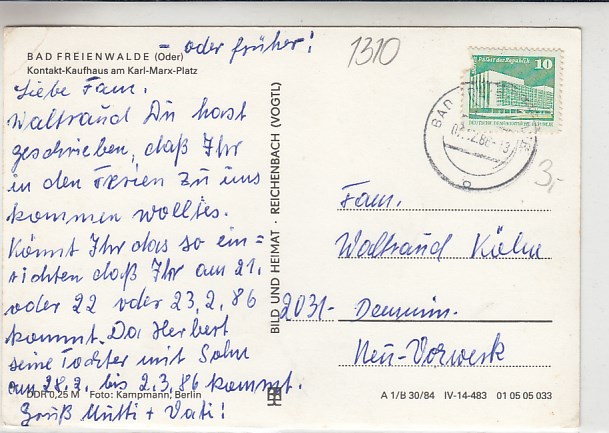 - oder früher!
1310
BAD FREIENWALDE (Oder)
Kontakt-Kaufhaus am Karl-Marx-Platz
Liebe Fam.
Waltraud Du hast
geschrieben, daß Ihr
in den Ferien zu uns
kommen wolltes.
Könnt Ihr das so ein=
richten daß Ihr am 21.
oder 22 oder 23.2.86
kommt. Da Herbert
seine Tochter mit Sohn
am 28.2. bis 2.3.86 kommt.
Gruß Mutti + Vati!
DDR 0,25 M Foto: Kampmann, Berlin
BILD UND HEIMAT · REICHENBACH (VOGTL)
Palast der Republik 10
DEUTSCHE DEMOKRATISCHE REPUBLIK
BAD
3,-
Fam.
Waltraud Kühn
2031- Demmin.
Neu-Vorwerk
A 1/B 30/84 IV-14-483 01 05 05 033